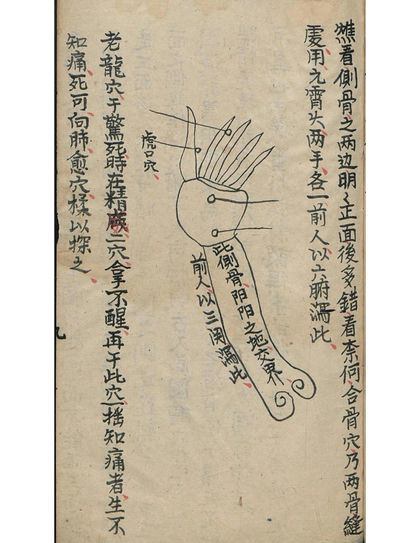 濰看側骨之两边明〻正面後多錯看柰何合骨穴乃两骨縫
處用元霄火两手各一前人以六腑瀉此
虎口穴
此側骨阳阳之地交界
前人以三関瀉此
老龍穴于驚死時在精威二穴拿不醒再于此穴一揺知痛者生不
知痛死可向肺愈穴樣以探之
九